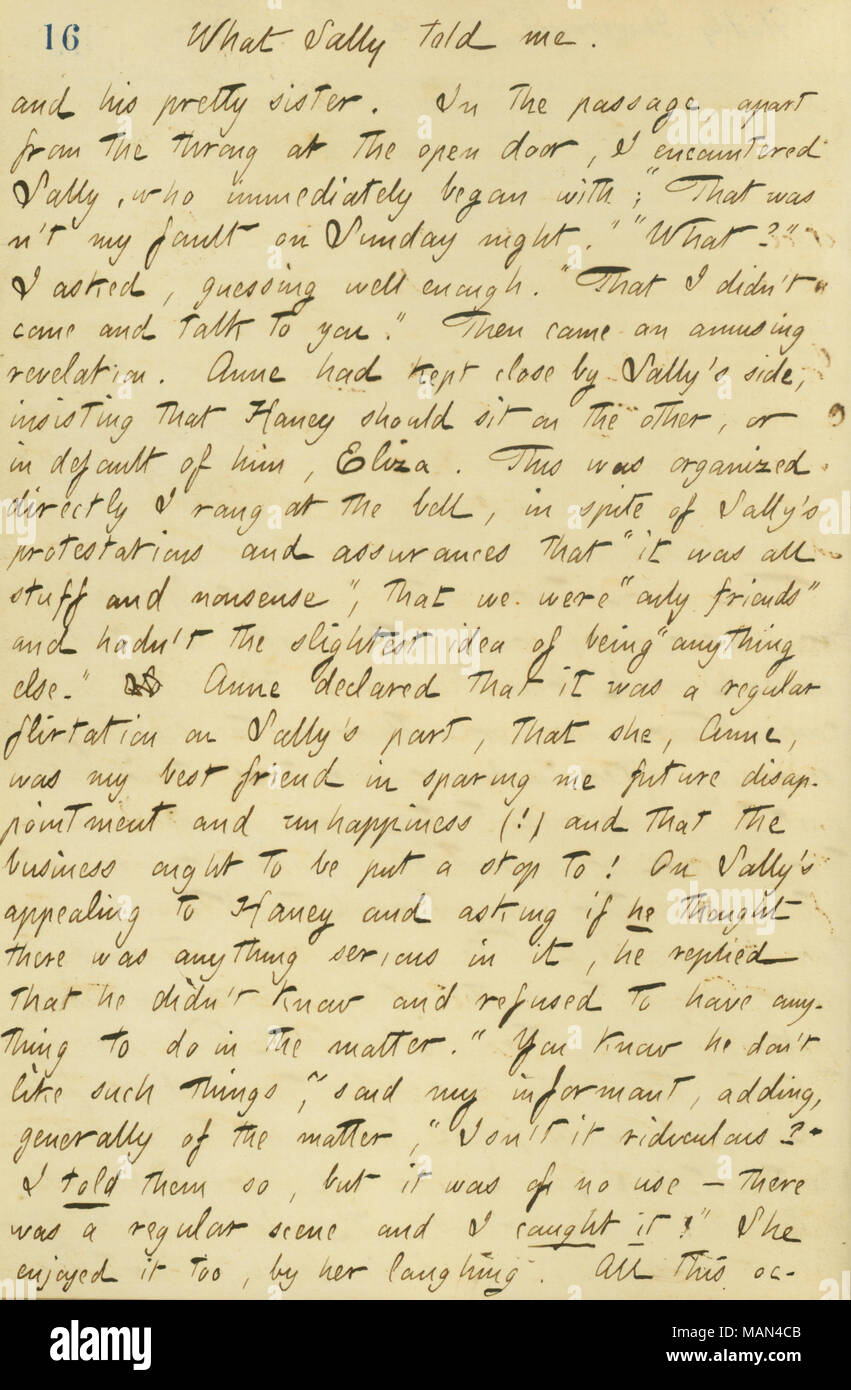 16 What Sally told me.
and his pretty sister. In the passage, apart
from the throng at the open door, I encountered
Sally, who immediately began with; "That was
n't my fault on Sunday night." "What?"
I asked, guessing well enough. "That I didn't
come and talk to you." Then came an amusing
revelation. Anne had kept close by Sally's side,
insisting that Haney should sit on the other, or
in default of him, Eliza. This was organized
directly I rang at the bell, in spite of Sally's
protestations and assurances that "it was all
stuff and nonsense", that we were "only friends"
and hadn't the slightest idea of being "anything
else." Anne declared that it was a regular
flirtation on Sally's part, that she, Anne,
was my best friend in sparing me future disap-
pointment and unhappiness (!) and that the
business ought to be put a stop to! On Sally's
appealing to Haney and asking if he thought
there was anything serious in it, he replied
that he didn't know and refused to have any-
thing to do in the matter. "You know he don't
like such things," said my informant, adding,
generally of the matter, "Isn't it ridiculous?
I told them so, but it was of no use — there
was a regular scene and I caught it!" She
enjoyed it too, by her laughing. All this oc-
alamy
Image ID: MAN4CB
www.alamy.com